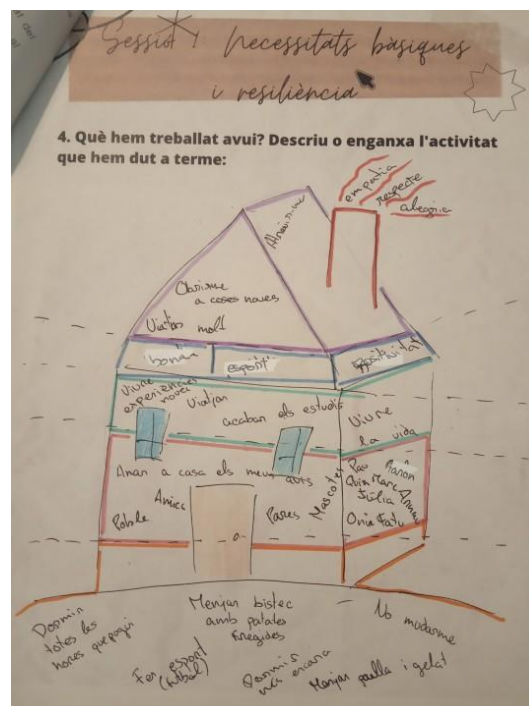 Sessió 1: Necessitats bàsiques
i resiliència
4. Què hem treballat avui? Descriu o enganxa l'activitat
que hem dut a terme:
empatia
respecte
alegria
Atrevirme
Obrirme
a coses noves
Viatjar molt
bondat
esport
positivitat
Viure
experiències
noves
Viatjar
acabar els estudis
Viure
la vida
Anar a casa els meus avis
Amics
Poble
Pares
Mascotes
Pau
Ramon
Quim Marc
Júlia
Arnau
Oriol Fatu
Dormir
totes les
hores que pugui
Menjar bistec
amb patates
fregides
No mudarme
Fer esport
(futbol)
Dormir
més encara
Menjar paella i gelat